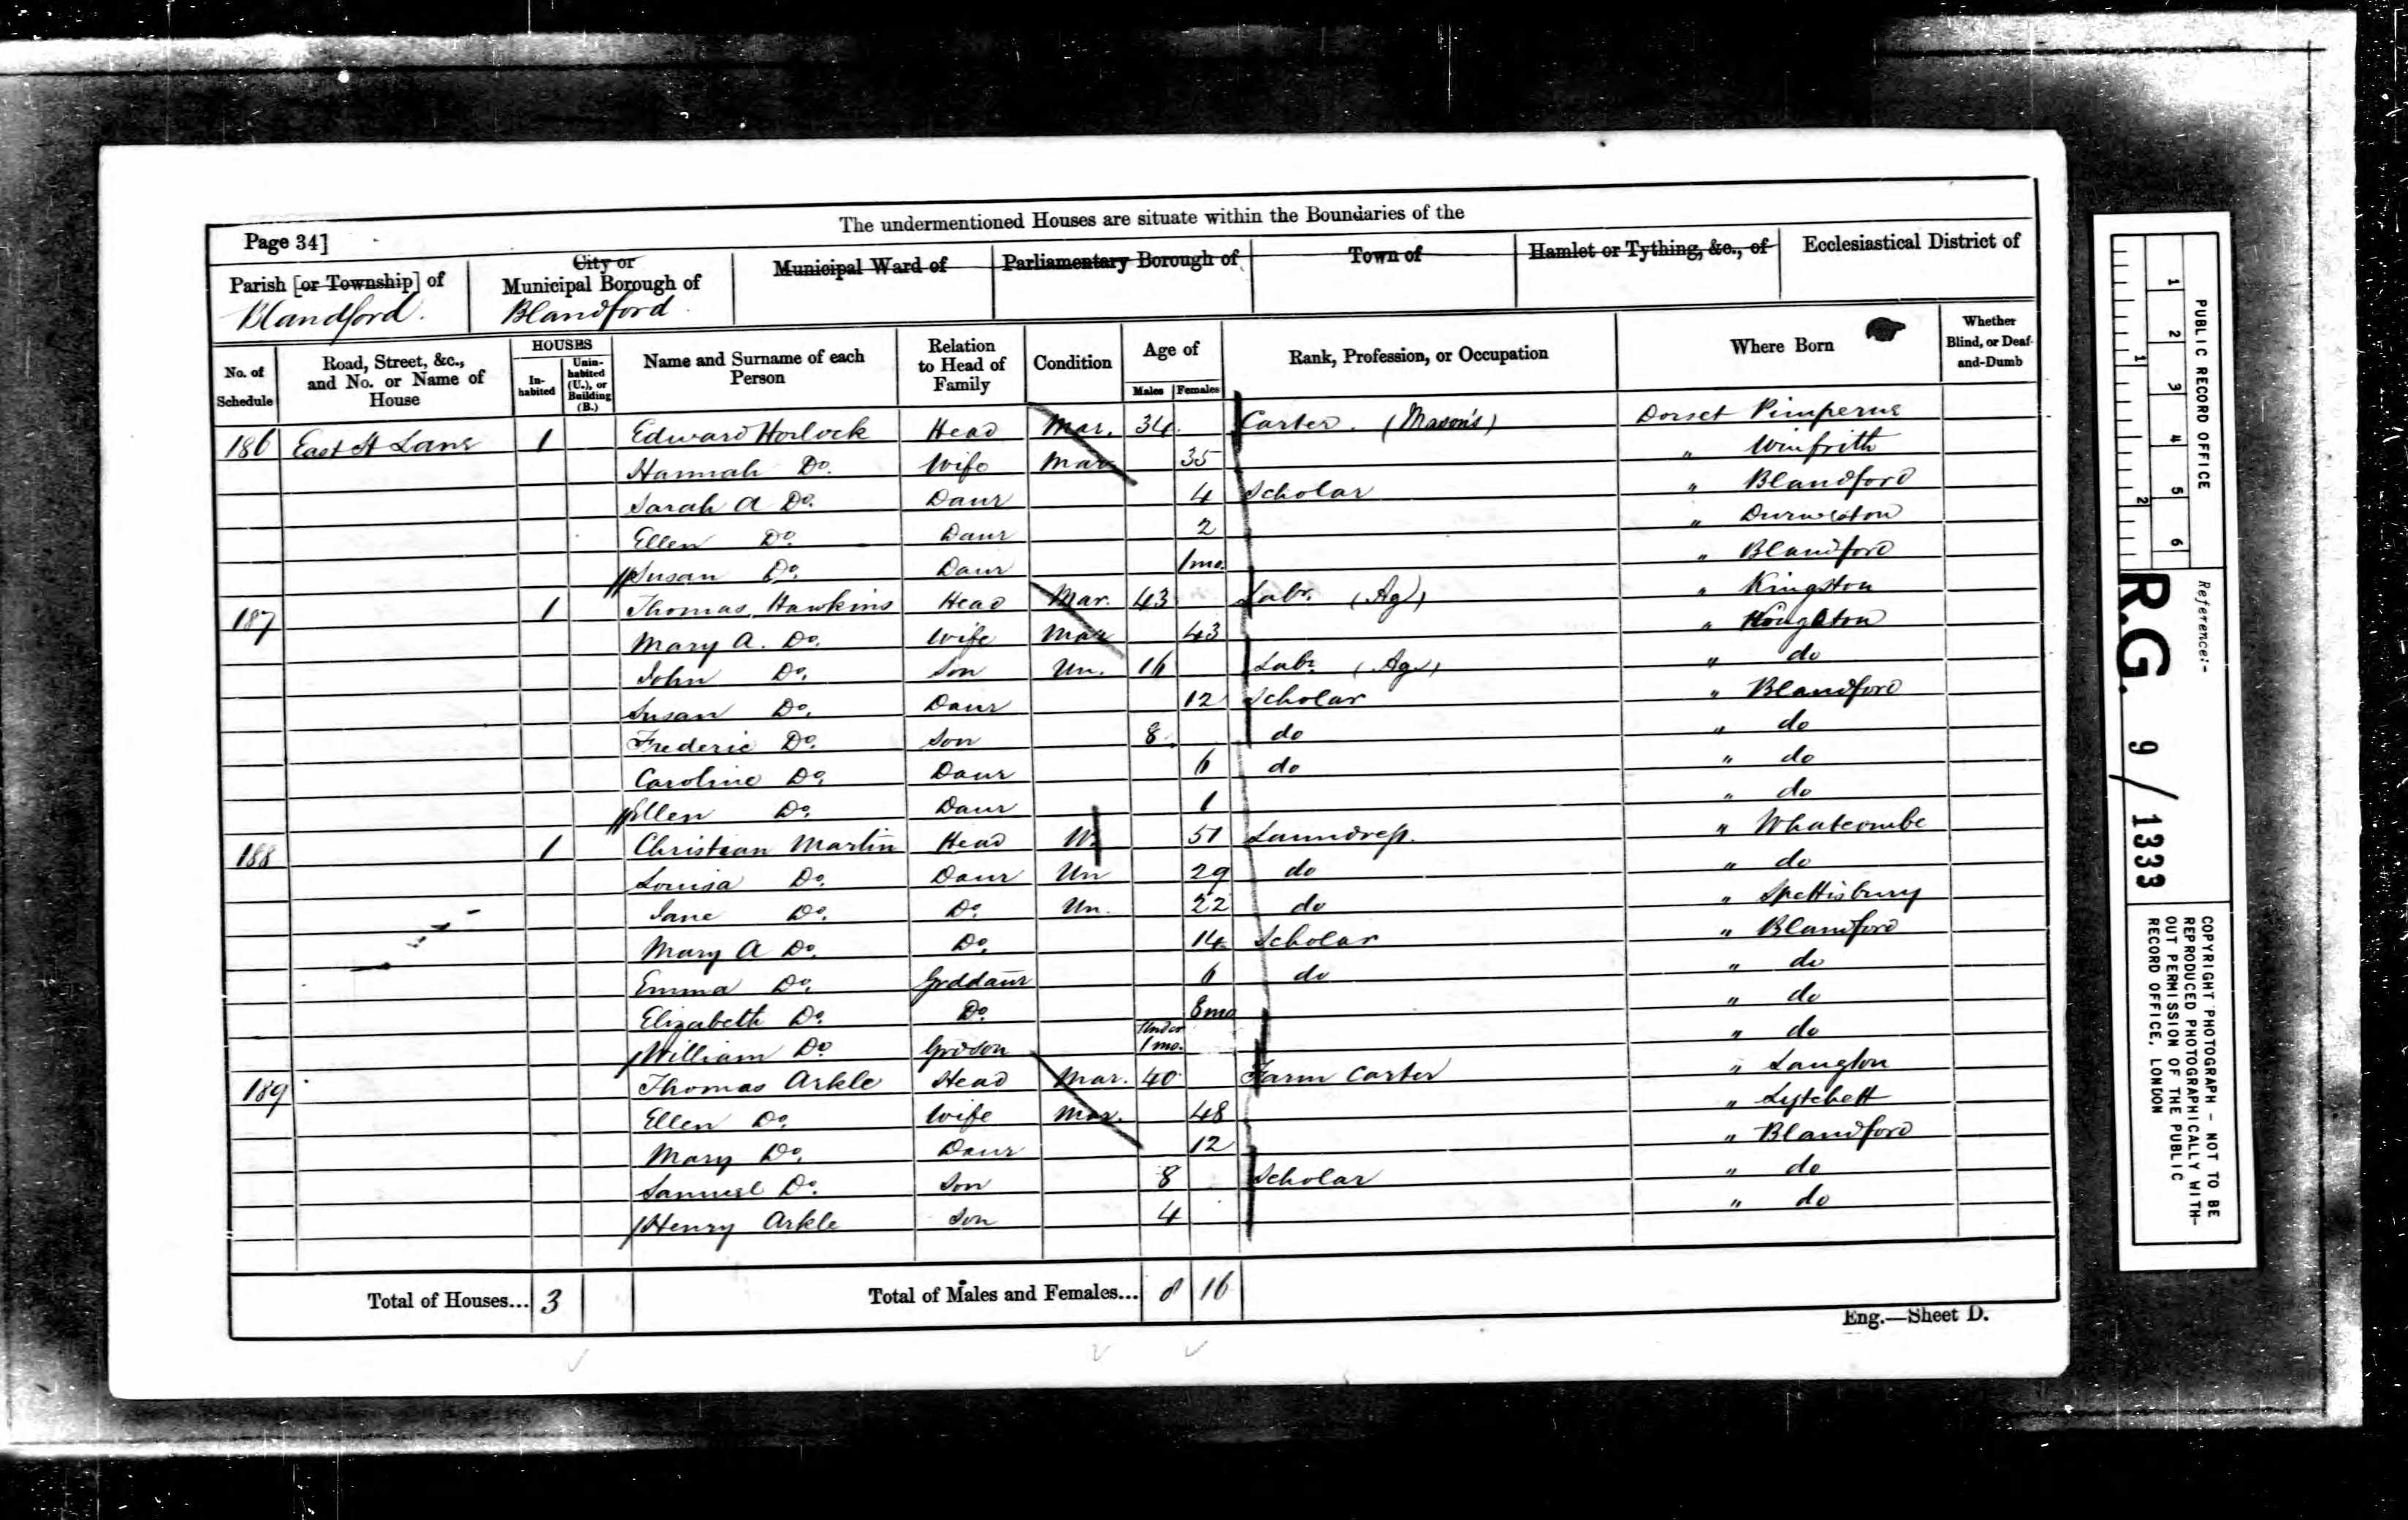 The undermentioned Houses are situate within the Boundaries of the
Page 34]
Parish [or Township] of
Blandford.
City or
Municipal Borough of
Blandford
Municipal Ward of
Parliamentary Borough of
Town of
Hamlet or Tything, &c., of
Ecclesiastical District of
No. of Schedule
Road, Street, &c., and No. or Name of House
HOUSES
Inhabited
Uninhabited (U.), or Building (B.)
Name and Surname of each Person
Relation to Head of Family
Condition
Age of
Males
Females
Rank, Profession, or Occupation
Where Born
Whether Blind, or Deaf-and-Dumb
186 East St Lane 1 Edward Horlock Head Mar. 34 Carter. (Mason's) Dorset Pimperne
Hannah Do. Wife Mar 35 " Winfrith
Sarah A Do. Daur 4 Scholar " Blandford
Ellen Do. Daur 2 " Durweston
Susan Do. Daur 1mo. " Blandford
187 1 Thomas Hawkins Head Mar. 43 Labr. (Ag) " Kingston
Mary A. Do. Wife Mar 43 " Houghton
John Do. Son Un. 16 Labr. (Ag.) " do
Susan Do. Daur 12 Scholar " Blandford
Frederic Do. Son 8 do " do
Caroline Do. Daur 6 do " do
Ellen Do. Daur 1 " do
188 1 Christian Martin Head W. 51 Laundress. " Whatcombe
Louisa Do. Daur Un 29 do " do
Jane Do. Do. Un. 22 do " Spettisbury
Mary A Do. Do. 14 Scholar " Blandford
Emma Do. Grddaur 6 do " do
Elizabeth Do. Do. 8mo " do
William Do. Grdson Under 1 mo. " do
189 Thomas Arkle Head Mar. 40 Farm Carter " Langton
Ellen Do. Wife Mar. 48 " Lytchett
Mary Do. Daur 12 " Blandford
Samuel Do. Son 8 Scholar " do
Henry Arkle Son 4 " do
Total of Houses... 3
Total of Males and Females... 8 16
Eng.—Sheet D.
PUBLIC RECORD OFFICE
1 2 3 4 5 6
1 2
Reference:-
R.G. 9 / 1333
COPYRIGHT PHOTOGRAPH - NOT TO BE
REPRODUCED PHOTOGRAPHICALLY WITH-
OUT PERMISSION OF THE PUBLIC
RECORD OFFICE, LONDON